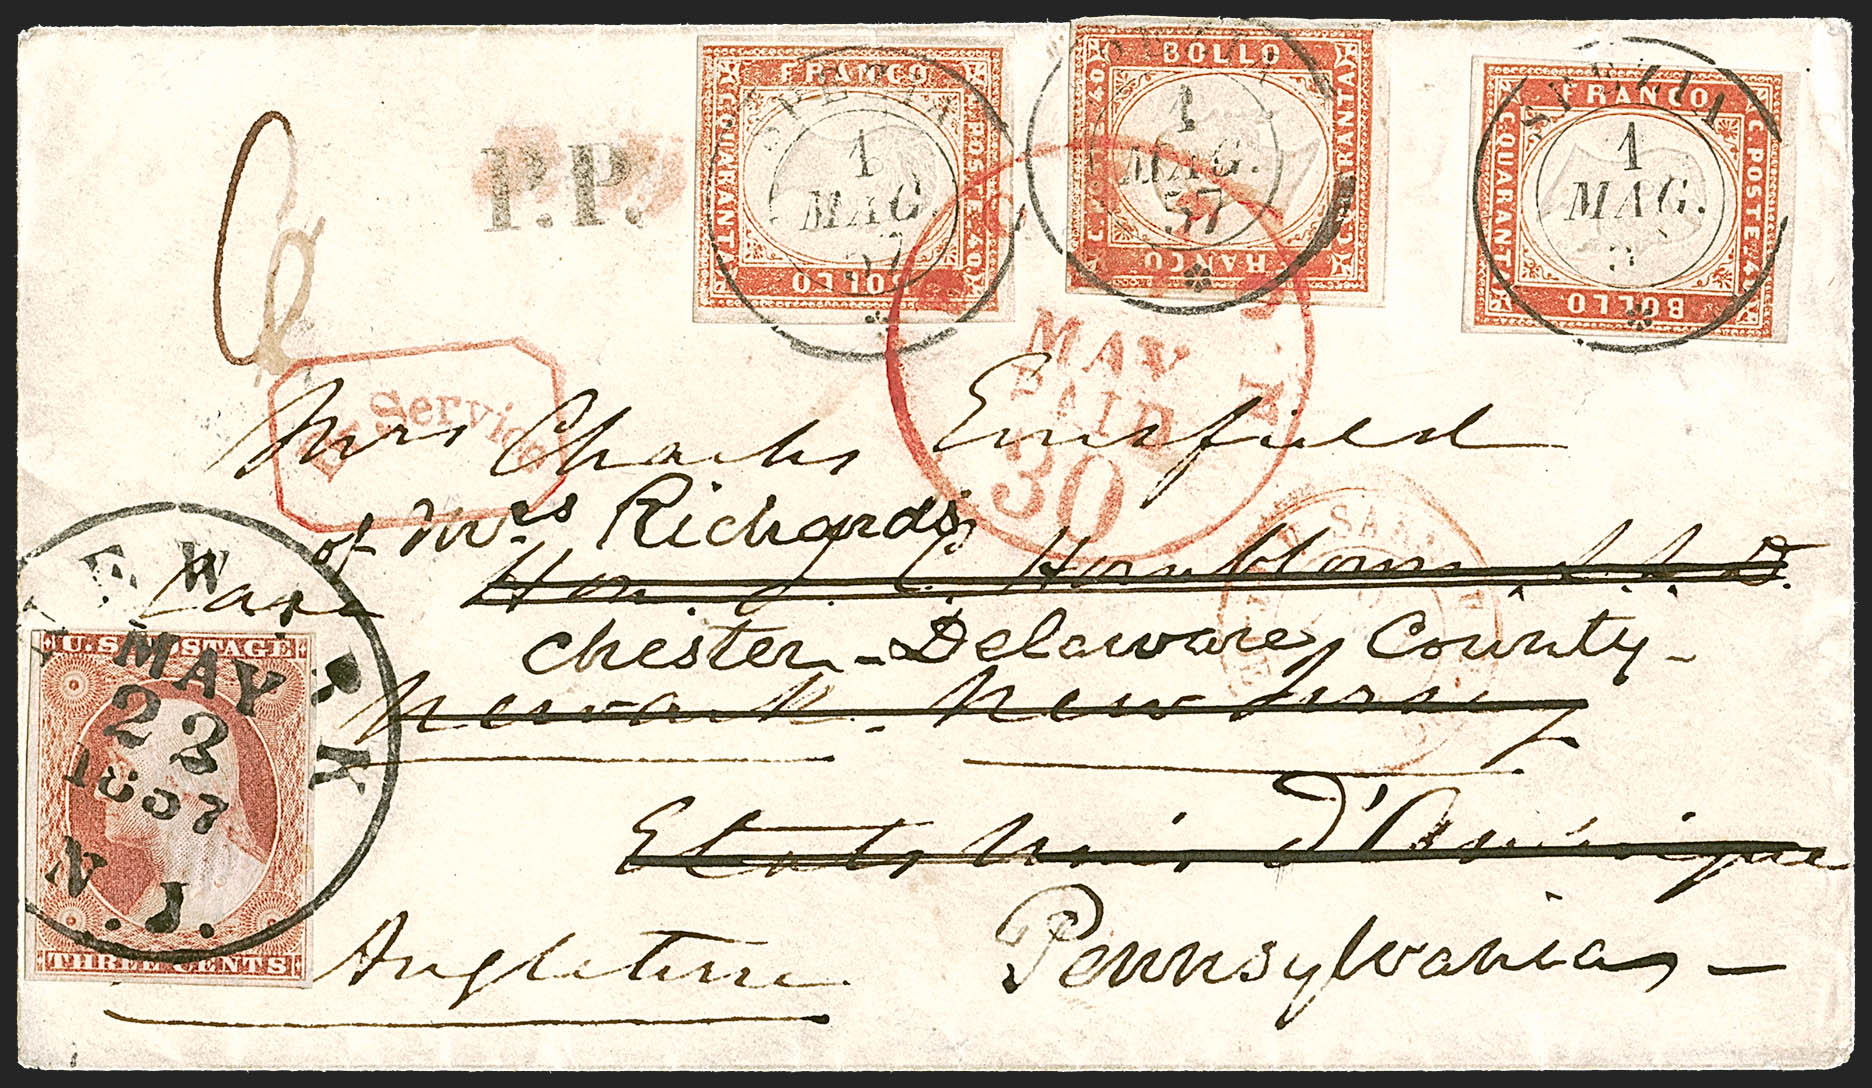 FRANCO
C. QUARANTA
C. POSTE 40
BOLLO
SPEZIA
1
MAG.
57
BOLLO
C. POSTE 40
C. QUARANTA
FRANCO
1
MAG.
57
FRANCO
C. QUARANTA
C. POSTE 40
BOLLO
SPEZIA
1
MAG.
5
P.P.
6
MAY
PAID
30
Br. Service
Mrs Charles Enfield
of Mrs Richards
Care Hon. J. C. Hornblower, L.L.D.
SAR
Chester - Delaware County -
Newark - New Jersey
Etats Unis d'Amérique
Angleterre
Pennsylvania -
NEWARK
MAY
23
1857
N.J.
U.S. POSTAGE
THREE CENTS